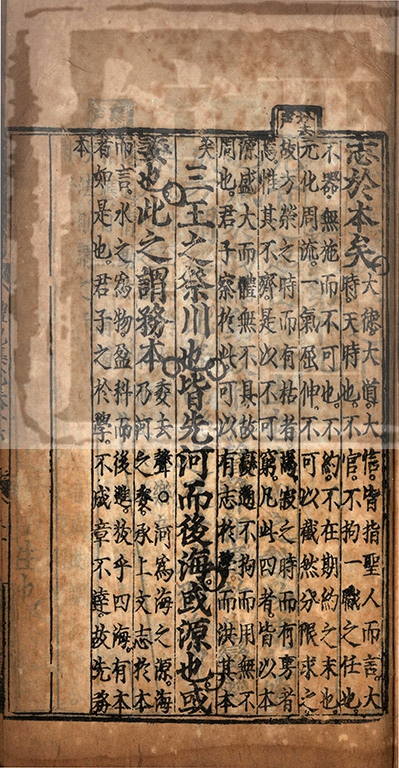 志於本矣大德大道大信皆指聖人而言大
時天時也不官不拘一職之任也
不器無施而不可也不約不在期約之末也
元化周流一氣屈伸不可以截然分限求之
故方榮之時而有枯者焉寂之時而有旉者
焉惟其不齊是以不可窮凡此四者皆以本
源盛大而體無不具故變通不拘而用無不
周也君子察於此可以有志於學而洪其本
矣
三王之祭川也皆先河而後海或源也或
委也此之謂務本委去聲○河為海之源海
乃河之委承上文志於本
而言水之爲物盈科而後進放乎四海有本
者如是也君子之於學不成章不達故先務
本